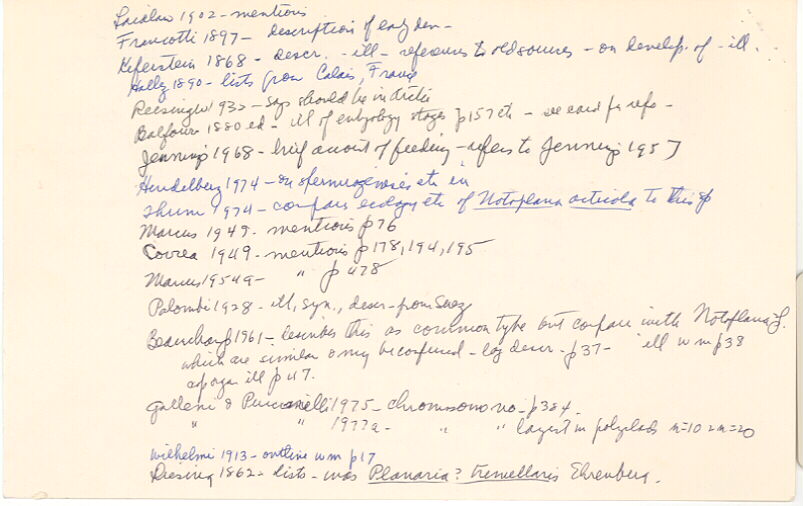 Laidlaw 1902 - mentions
Francotti 1897 - description of early dev-
Keferstein 1868 - descr. - ill - references to old sources - on develop. of - ill.
Hallez 1890 - lists from Calais, France
Reisinger 193 - says should be in
Balfour 1880 ed - ill of embryology stages p157 etc - see card for refs -
Jennings 1968 - brief account of feeding - refers to Jennings 1957
Hendelberg 1974 - on spermiogenesis etc in
Thum 1974 - compares ecology etc of Notoplana acticola to this sp
Marcus 1949 - mentions p76
Correa 1949 - mentions p178, 194, 195
Marcus 1954a - " p 478
Palombi 1928 - ill, syn., descr - from Suez
Beauchamp 1961 - describes this as common type but compare with Notoplana
which are similar & may be confused - leg descr. - p37 - ill w m p38
ill p 47.
Galleni & Puccinelli 1975 - chromosome no - p384.
" " 1977a - " " largest in polyclads n=10 2n=20
Wilhelmi 1913 - outline w m p17
Diesing 1862 - lists - was Planaria? tremellaris Ehrenberg.